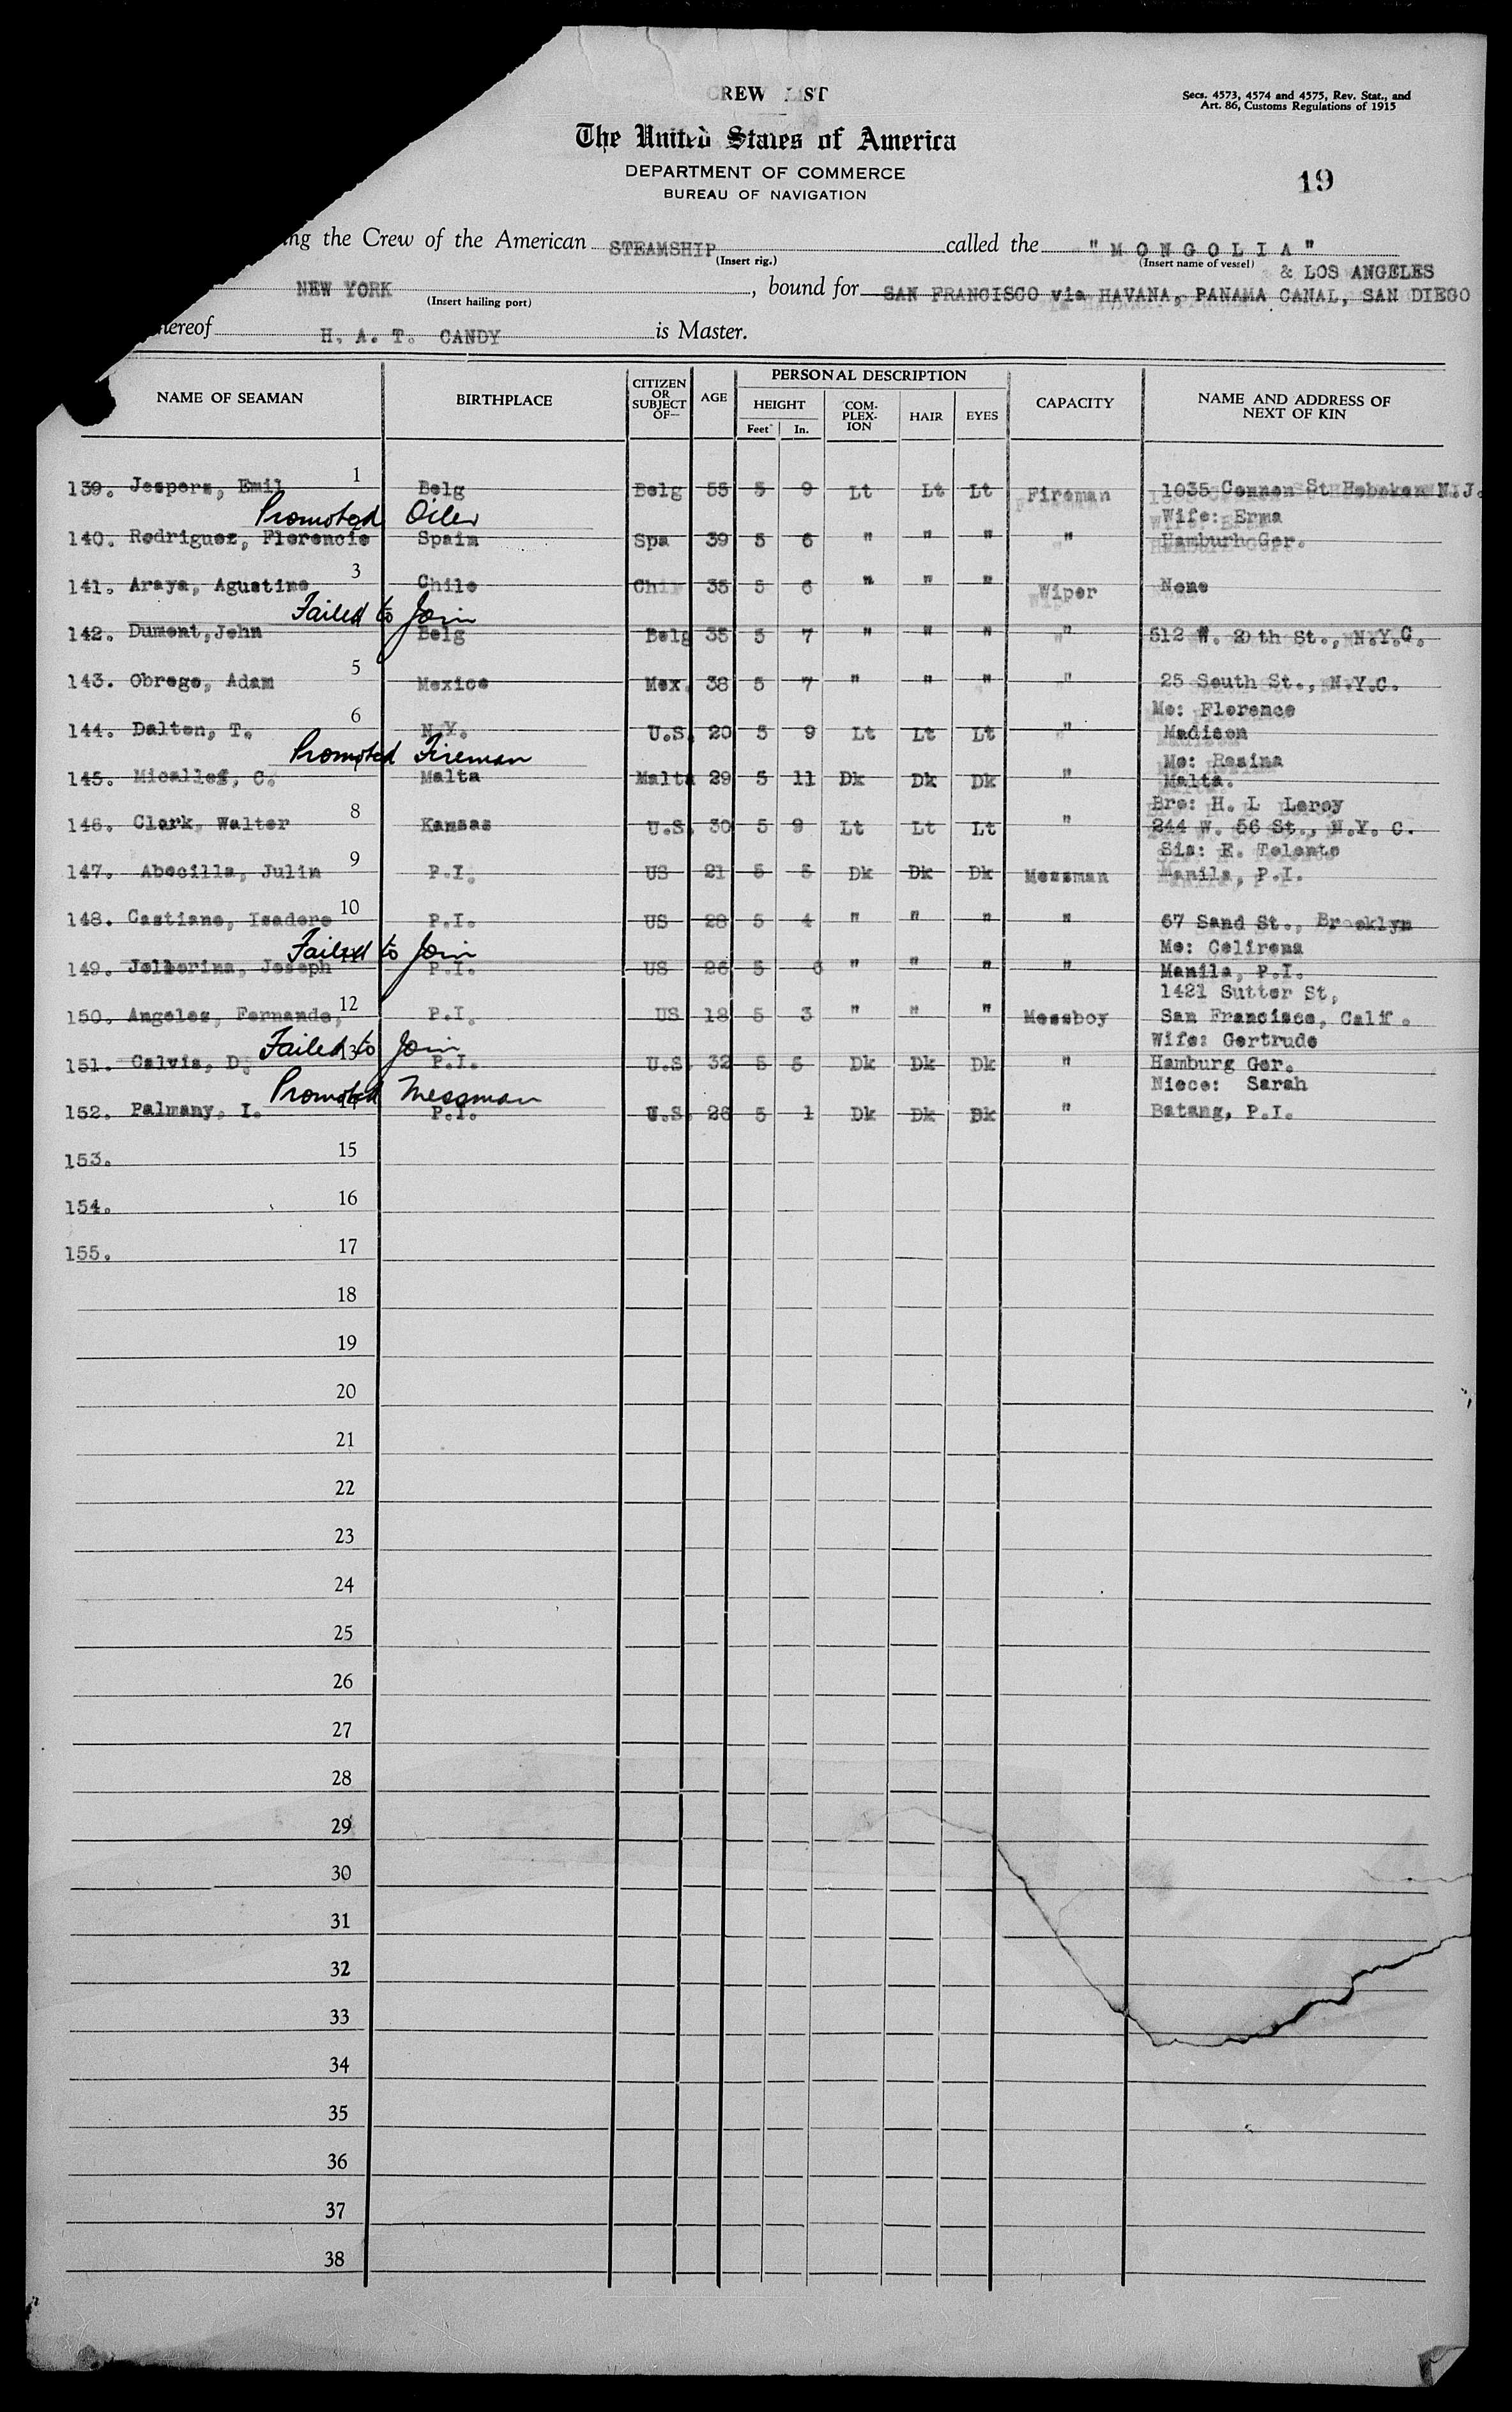 CREW LIST
Secs. 4573, 4574 and 4575, Rev. Stat., and
Art. 86, Customs Regulations of 1915
The United States of America
DEPARTMENT OF COMMERCE
BUREAU OF NAVIGATION
19
ng the Crew of the American STEAMSHIP called the "MONGOLIA"
(Insert rig.) (Insert name of vessel)
& LOS ANGELES
NEW YORK, bound for SAN FRANCISCO via HAVANA, PANAMA CANAL, SAN DIEGO
(Insert hailing port)
hereof H. A. T. CANDY is Master.
NAME OF SEAMAN BIRTHPLACE CITIZEN OR SUBJECT OF— AGE PERSONAL DESCRIPTION CAPACITY NAME AND ADDRESS OF NEXT OF KIN
HEIGHT COM-PLEX-ION HAIR EYES
Feet In.
139. Jespers, Emil 1 Belg Belg 55 5 9 Lt Lt Lt Fireman 1035 Common St Hoboken N.J.
Promoted Oiler Wife: Erma
140. Rodriguez, Florencio Spain Spa 39 5 6 " " " " Hamburh Ger.
141. Araya, Agustine 3 Chile Chi 35 5 6 " " " Wiper None
Failed to Join
142. Dumont, John Belg Belg 35 5 7 " " " " 512 W. 20th St., N.Y.C.
143. Obrego, Adam 5 Mexico Mex. 38 5 7 " " " " 25 South St., N.Y.C.
Mo: Florence
144. Dalton, T. 6 N.Y. U.S. 20 5 9 Lt Lt Lt " Madison
Promoted Fireman Mo: Rosina
145. Micallef, C. Malta Malta 29 5 11 Dk Dk Dk " Malta.
Bro: H. L Leroy
146. Clark, Walter 8 Kansas U.S. 30 5 9 Lt Lt Lt " 244 W. 56 St., N.Y. C.
Sis: E. Tolento
147. Abecilla, Julin 9 P.I. US 21 5 5 Dk Dk Dk Messman Manila, P.I.
148. Castiano, Isadore 10 P.I. US 28 5 4 " " " " 67 Sand St., Brooklyn
Failed to Join Mo: Celirena
149. Jellorina, Joseph 11 P.I. US 26 5 6 " " " " Manila, P.I.
1421 Sutter St,
150. Angeles, Fernando, 12 P.I. US 18 5 3 " " " Messboy San Francisco, Calif.
Failed to Join Wife: Gertrude
151. Calvis, D. 13 P.I. U.S. 32 5 5 Dk Dk Dk " Hamburg Ger.
Promoted Messman Niece: Sarah
152. Palmany, I. 14 P.I. U.S. 26 5 1 Dk Dk Dk " Batang, P.I.
153. 15
154. 16
155. 17
18
19
20
21
22
23
24
25
26
27
28
29
30
31
32
33
34
35
36
37
38